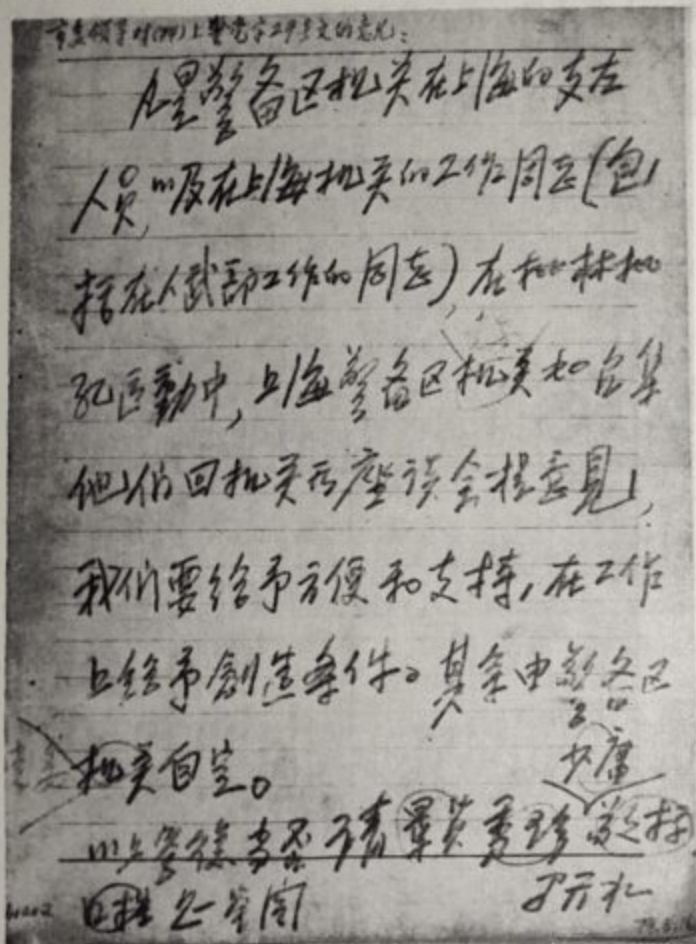 市委领导对(74)上警党字29号文的意见：
凡是警备区机关在上海的支左
人员，以及在上海机关的工作同志(包
括在人武部工作的同志)，在批林批
孔运動中，上海警备区机关如召集
他们回机关开座谈会提意見，
我们要给予方便和支持，在工作
上给予創造条件。其余由警备区
机关自定。
少庸
以上当否 请 秀珍